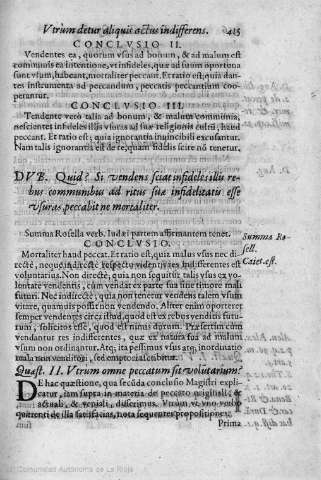 Vtrum detur aliquis actus indifferens. 425
CONCLVSIO II.
Vendentes ea, quorum vsus ad bonum, & ad malum est
communis ea intentione, vt infideles, quæ ad suum oportuna
sunt vsum, habeant, mortaliter peccant. Et ratio est; quia dan-
tes instrumenta ad peccandum, peccatis peccantium coo-
perantur.
CONCLVSIO III.
Tendente vero talia ad bonum, & ad malum communia,
nescientes infideles illis vsuros ad suæ religionis cultũ, haud
peccant. Et ratio est; quia ignorantia inuincibili excusantur.
Nam talis ignorantia est de re, quam fidelis scire nõ tenetur.
DVB. Quid? Si vendens sciat infideles illis re-
bus communibus ad ritus suæ infidelitatis esse
vsuros, peccabit ne mortaliter.
Summa Rosella verb. Iudæi partem affirmantem tenet.
Summa Ro-
sell.
CONCLVSIO.
Caiet. est.
Mortaliter haud peccat. Est ratio est, quia malus vsus nec di-
rectè, neque indirectè respectu videntis res indifferentes est
voluntarius. Non directè, quia non sequitur talis vsus ex vo-
luntate vendentis, cum vendat ex parte sua sine timore mali
futuri. Nec indirectè; quia non tenetur vendens talem vsum
vitare, quamuis possit non vendendo. Aliter enim oporteret
semper vendentes circa illud, quod est ex rebus venditis futu-
rum, solicitos esse, quod est nimis durum. Præsertim cum
vendantur res indifferentes, quæ ex natura sua ad malum
vsum non ordinantur. Atq; ita pessimus vsus atq; inordinatio
mala non venditori, sed emptori ascribitur.
Quæst. II. Vtrum omne peccatum sit volũtarium?
DE hac quæstione, qua secũda conclusio Magistri expli-
catur, iam supra in materia de peccato originali, &
actuali, & veniali, differimus. Vtrum
nota sequentes propositiones.
Prima
Comunidad Autónoma de La Rioja